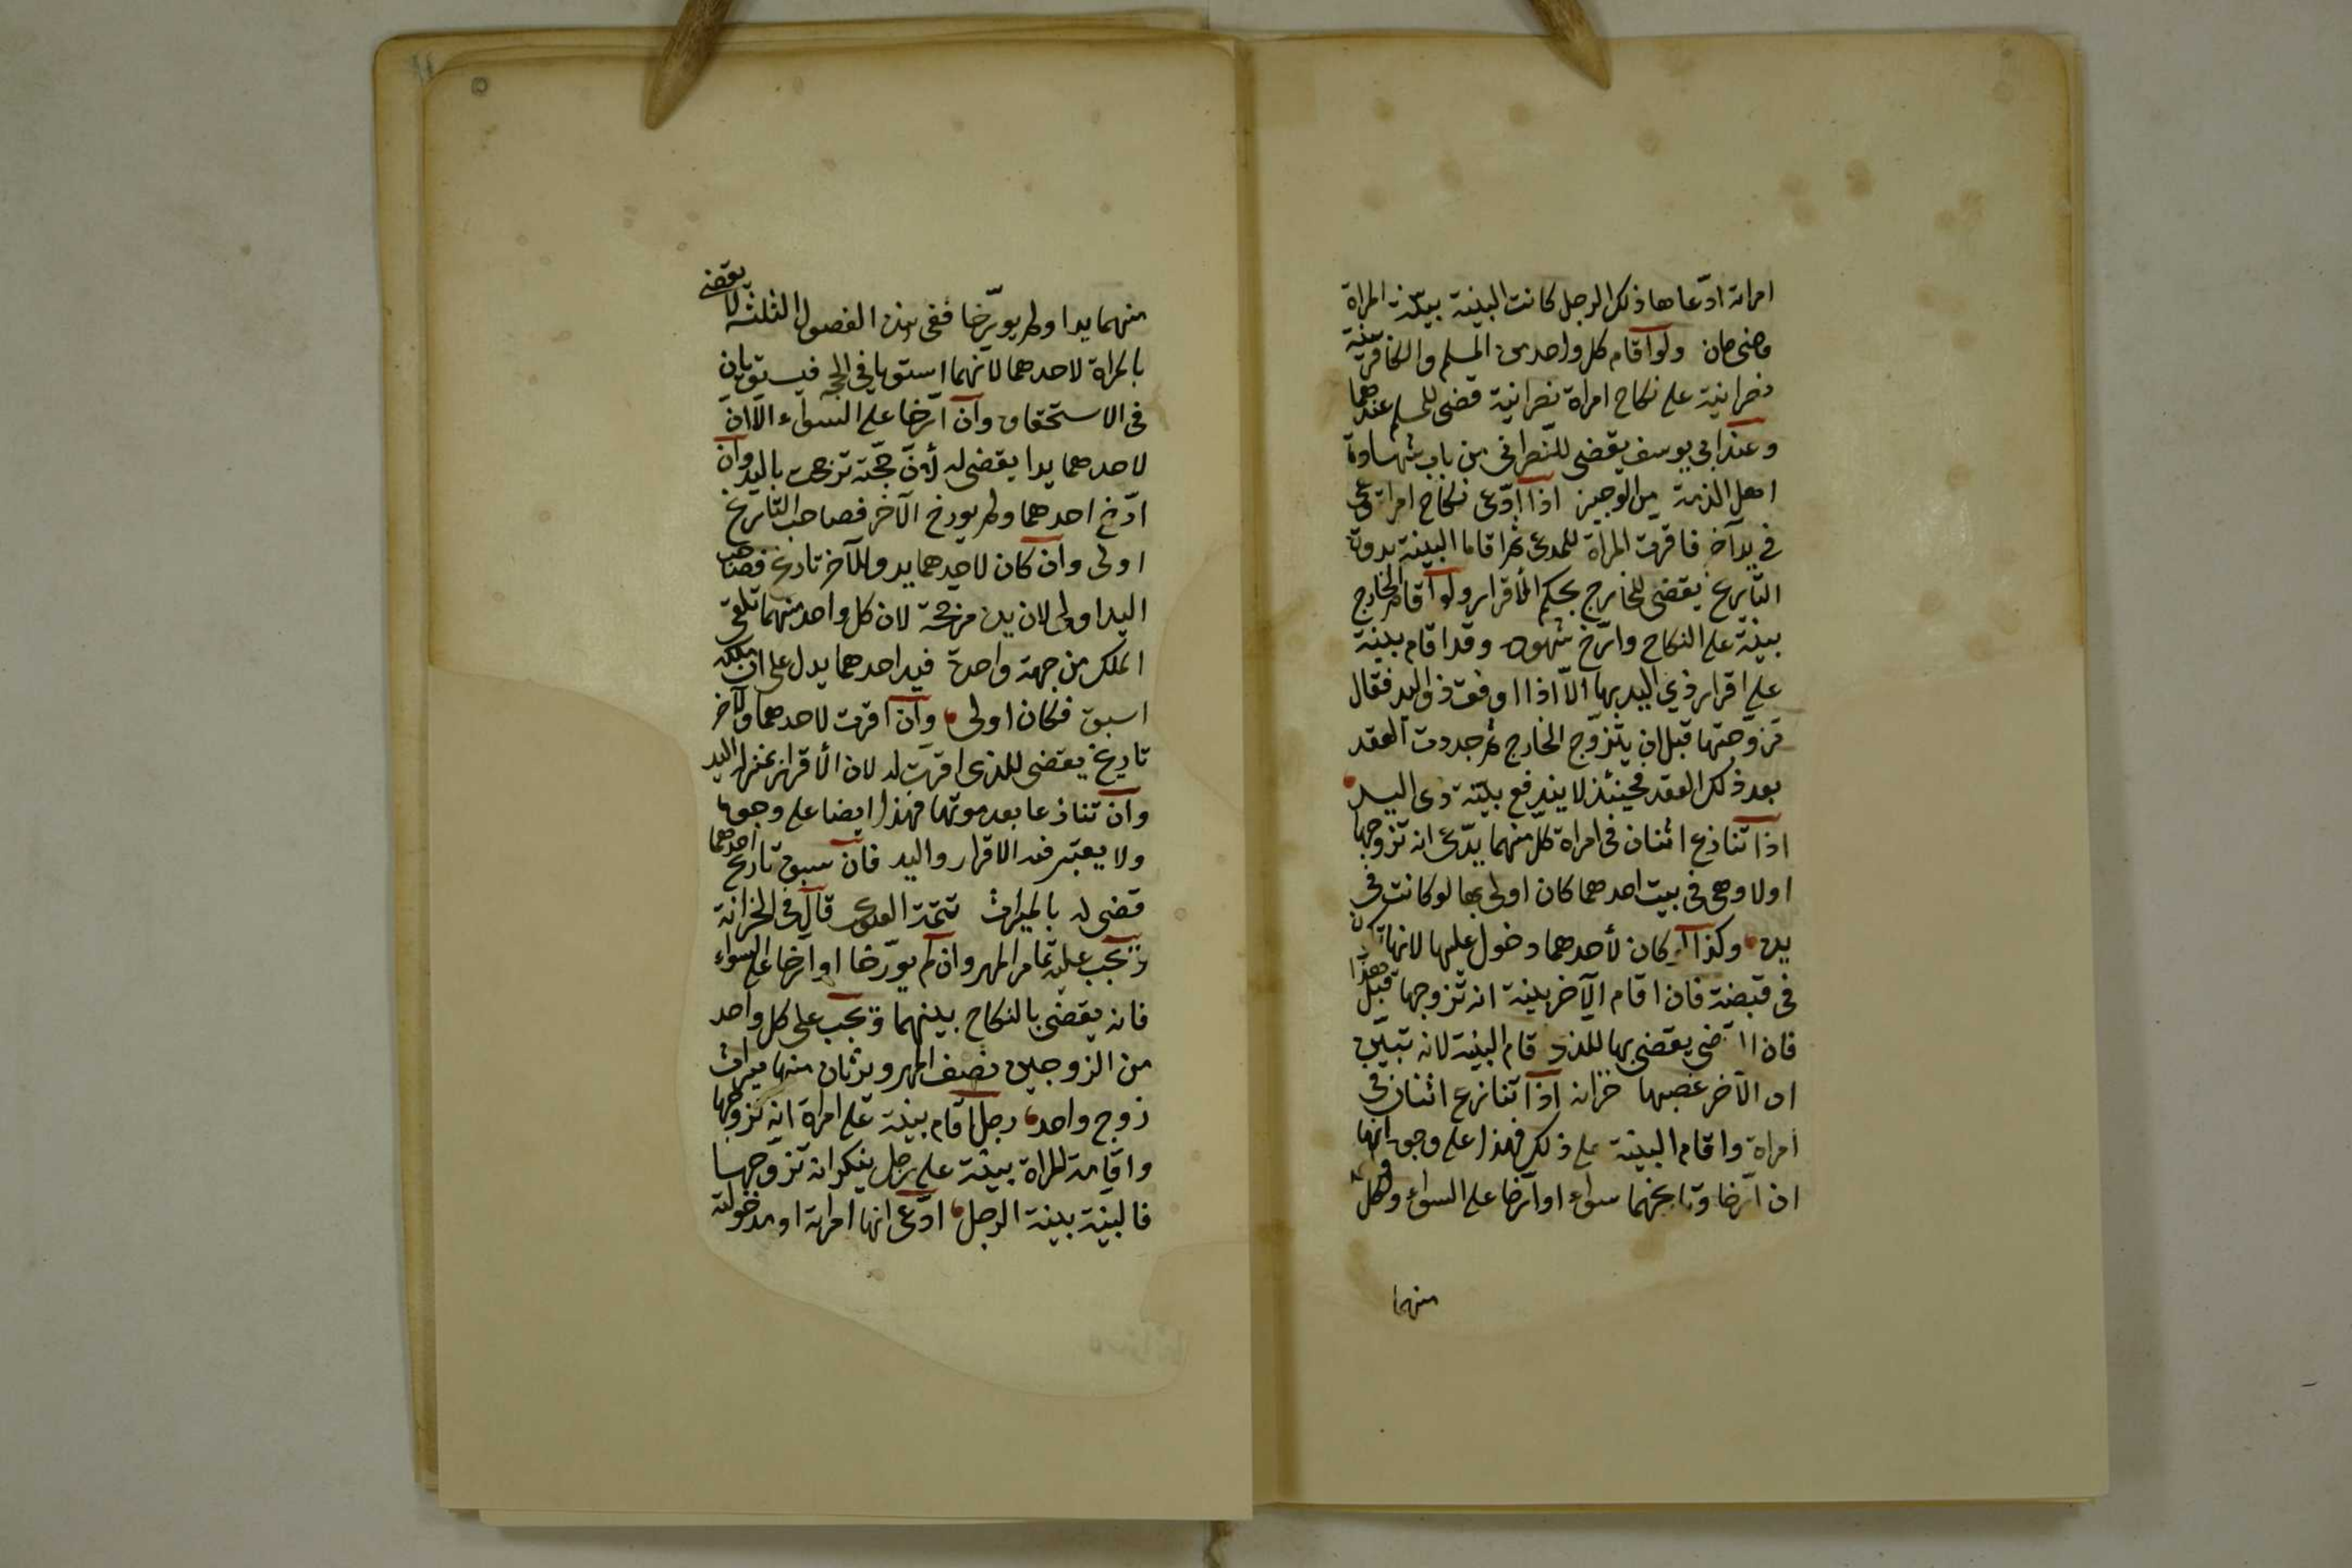 امراته ادّعاها ذلك الرجل كانت البينة بينة المراة
قاضى خان ولو اقام كل واحد من المسلم والكافر بينة
نصرانية على نكاح امراة نصرانية قضى للمسلم عندهما
وعند ابى يوسف يقضى للنصرانى من باب شهادة
اهل الذمة من الوجيز اذا ادّعى نكاح امراة هى
فى يد آخر فاقرت المراة للمدعى ثم اقاما البينة بدون
التاريخ يقضى للخارج بحكم الأقرار ولو اقام الخارج
بينة على النكاح وارّخ شهوده وقد اقام بينة
على اقرار ذى اليد بها الّا اذا وفق ذو اليد فقال
تزوجتها قبل ان يتزوّج الخارج ثم جددت العقد
بعد ذلك العقد فحينئذ لا يندفع بينة ذى اليد
اذا تنازع اثنان فى امراة كلّ منهما يدّعى انه تزوجها
اولا وهى فى بيت احدهما كان اولى بها لو كانت فى
يده وكذا كان لأحدهما دخول عليها لانها تكون
فى قبضته فان اقام الآخر بينة انه تزوجها قبل هذا
فان القاضى يقضى بها للذى اقام البينة لانه تبيّن
ان الآخر غصبها خزانه اذا تنازع اثنان فى
امراة واقام البينة على ذلك فهذا على وجوه انهما
ان ارّخا وتاريخهما سواء او ارّخا على السواء ولكل
منهما
منهما يدا ولم يورّخا ففى هذه الفصول الثلثة لا يقضى
بالمراة لاحدهما لانهما استويا فى الحجة فيستويان
فى الاستحقاق وان ارّخا على السواء الّا ان
لاحدهما يدا يقضى له لأنّ حجّته ترجحت باليد وان
ارّخ احدهما ولم يورخ الآخر فصاحب التاريخ
اولى وان كان لاحدهما يد وللآخر تاريخ فصاحب
اليد اولى لان يده مرجحة لان كل واحد منهما تلقى
الملك من جهة واحدة فيد احدهما يدل على ان ملكه
اسبق فكان اولى وان اقرت لاحدهما وللآخر
تاريخ يقضى للذى اقرت له لان الأقرار بمنزلة اليد
وان تنازعا بعد موتها فهذا ايضا على وجوه
ولا يعتبر فيه الاقرار واليد فان سبق تاريخ احدهما
قضى له بالميراث تتمة الفتاوى قال فى الخزانة
ويجب عليه تمام المهر وان لم يورّخا او ارخا على السواء
فانه يقضى بالنكاح بينهما ويجب على كل واحد
من الزوجين نصف المهر ويرثان منها ميراث
زوج واحد رجل اقام بينة على امراة انه تزوجها
واقامت المراة بينة على رجل ينكر انه تزوجها
فالبينة بينة الرجل ادّعى انها امراته او مدخولته